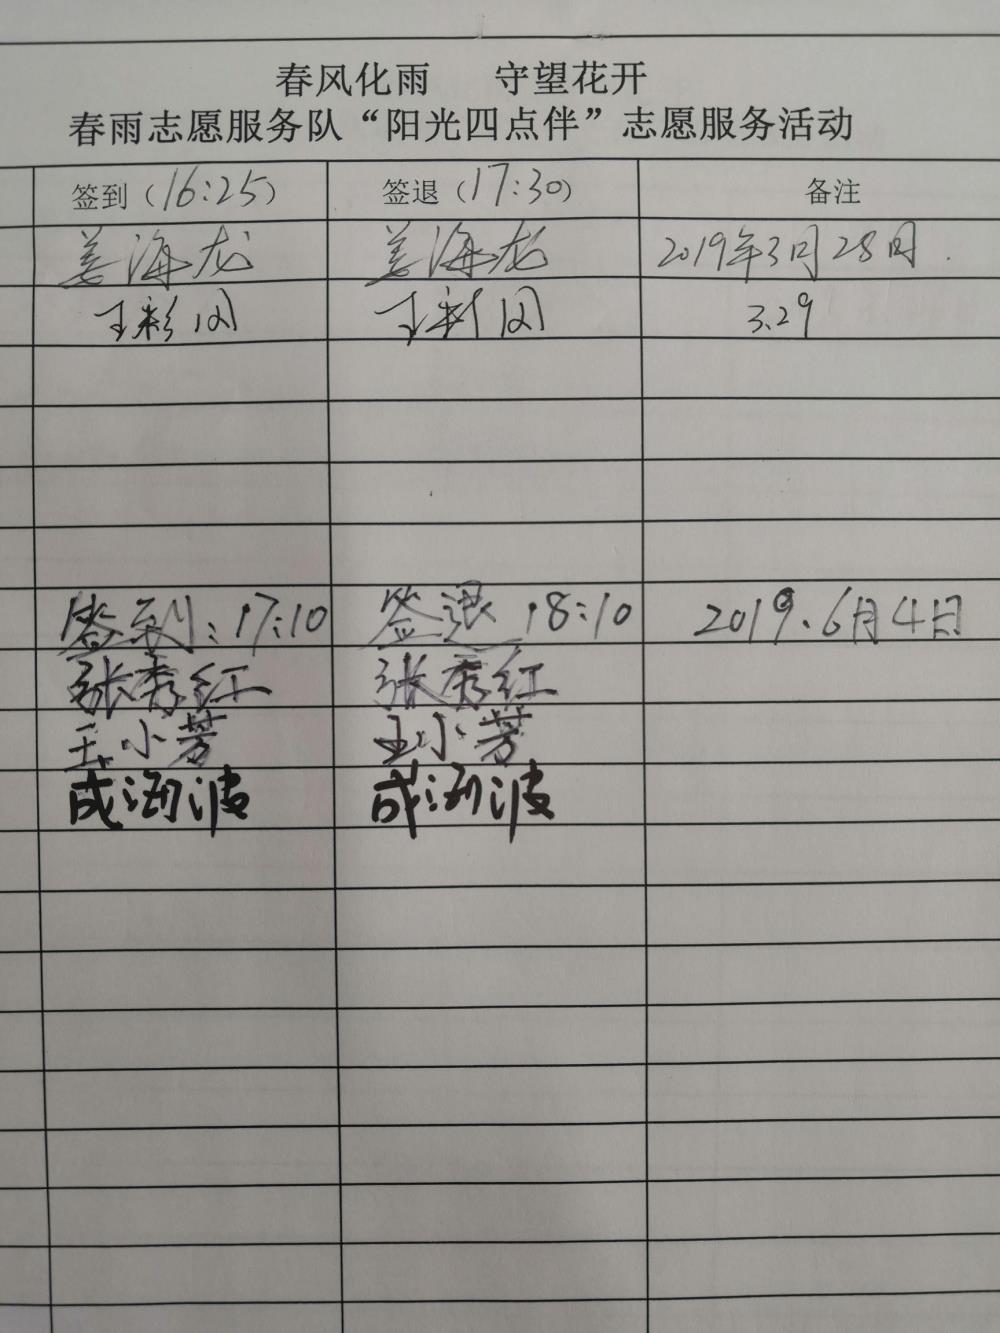 春风化雨 守望花开
春雨志愿服务队“阳光四点伴”志愿服务活动
签到（16:25） 签退（17:30） 备注
姜海龙 姜海龙 2019年3月28日.
王彩 王彩 3.29
签到:17:10 签退 18:10 2019.6月4日
张秀红 张秀红
王小芳 王小芳
成海波 成海波